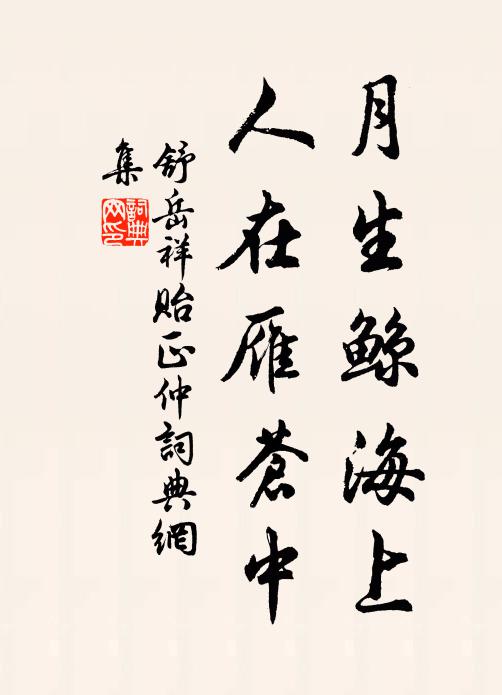 月生鲸海上
人在雁苍中
舒岳祥贻正仲詞典網
集
詞典
网印